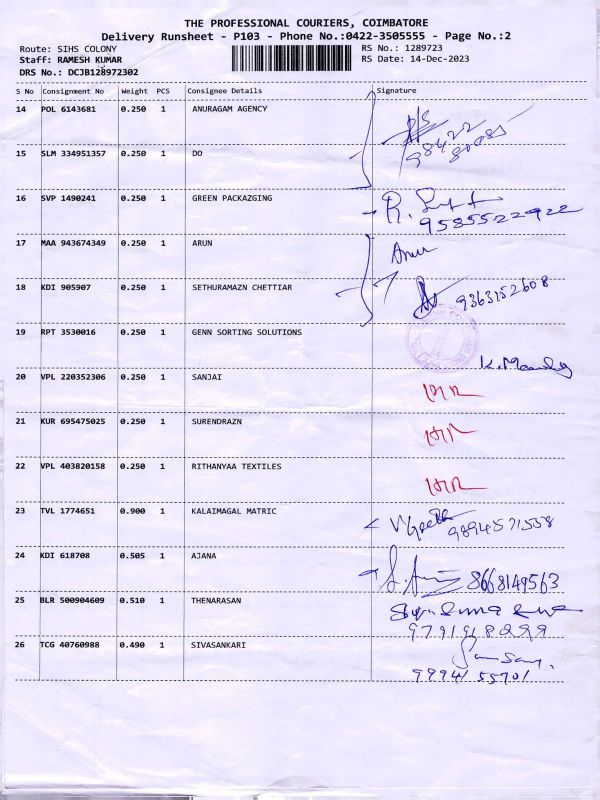 THE PROFESSIONAL COURIERS, COIMBATORE
Delivery Runsheet - P103 - Phone No.:0422-3505555 - Page No.:2
Route: SIHS COLONY RS No.: 1289723
Staff: RAMESH KUMAR RS Date: 14-Dec-2023
DRS No.: DCJB128972302
S No Consignment No Weight PCS Consignee Details Signature
14 POL 6143681 0.250 1 ANURAGAM AGENCY
98422
80085
15 SLM 334951357 0.250 1 DO
16 SVP 1490241 0.250 1 GREEN PACKAZGING R.
9585522922
17 MAA 943674349 0.250 1 ARUN Arun
18 KDI 905907 0.250 1 SETHURAMAZN CHETTIAR 9363152608
19 RPT 3530016 0.250 1 GENN SORTING SOLUTIONS
20 VPL 220352306 0.250 1 SANJAI
21 KUR 695475025 0.250 1 SURENDRAZN
22 VPL 403820158 0.250 1 RITHANYAA TEXTILES
23 TVL 1774651 0.900 1 KALAIMAGAL MATRIC 9894571558
24 KDI 618708 0.505 1 AJANA 8668149563
25 BLR 500904609 0.510 1 THENARASAN
9791918299
26 TCG 40760988 0.490 1 SIVASANKARI
99941 55701